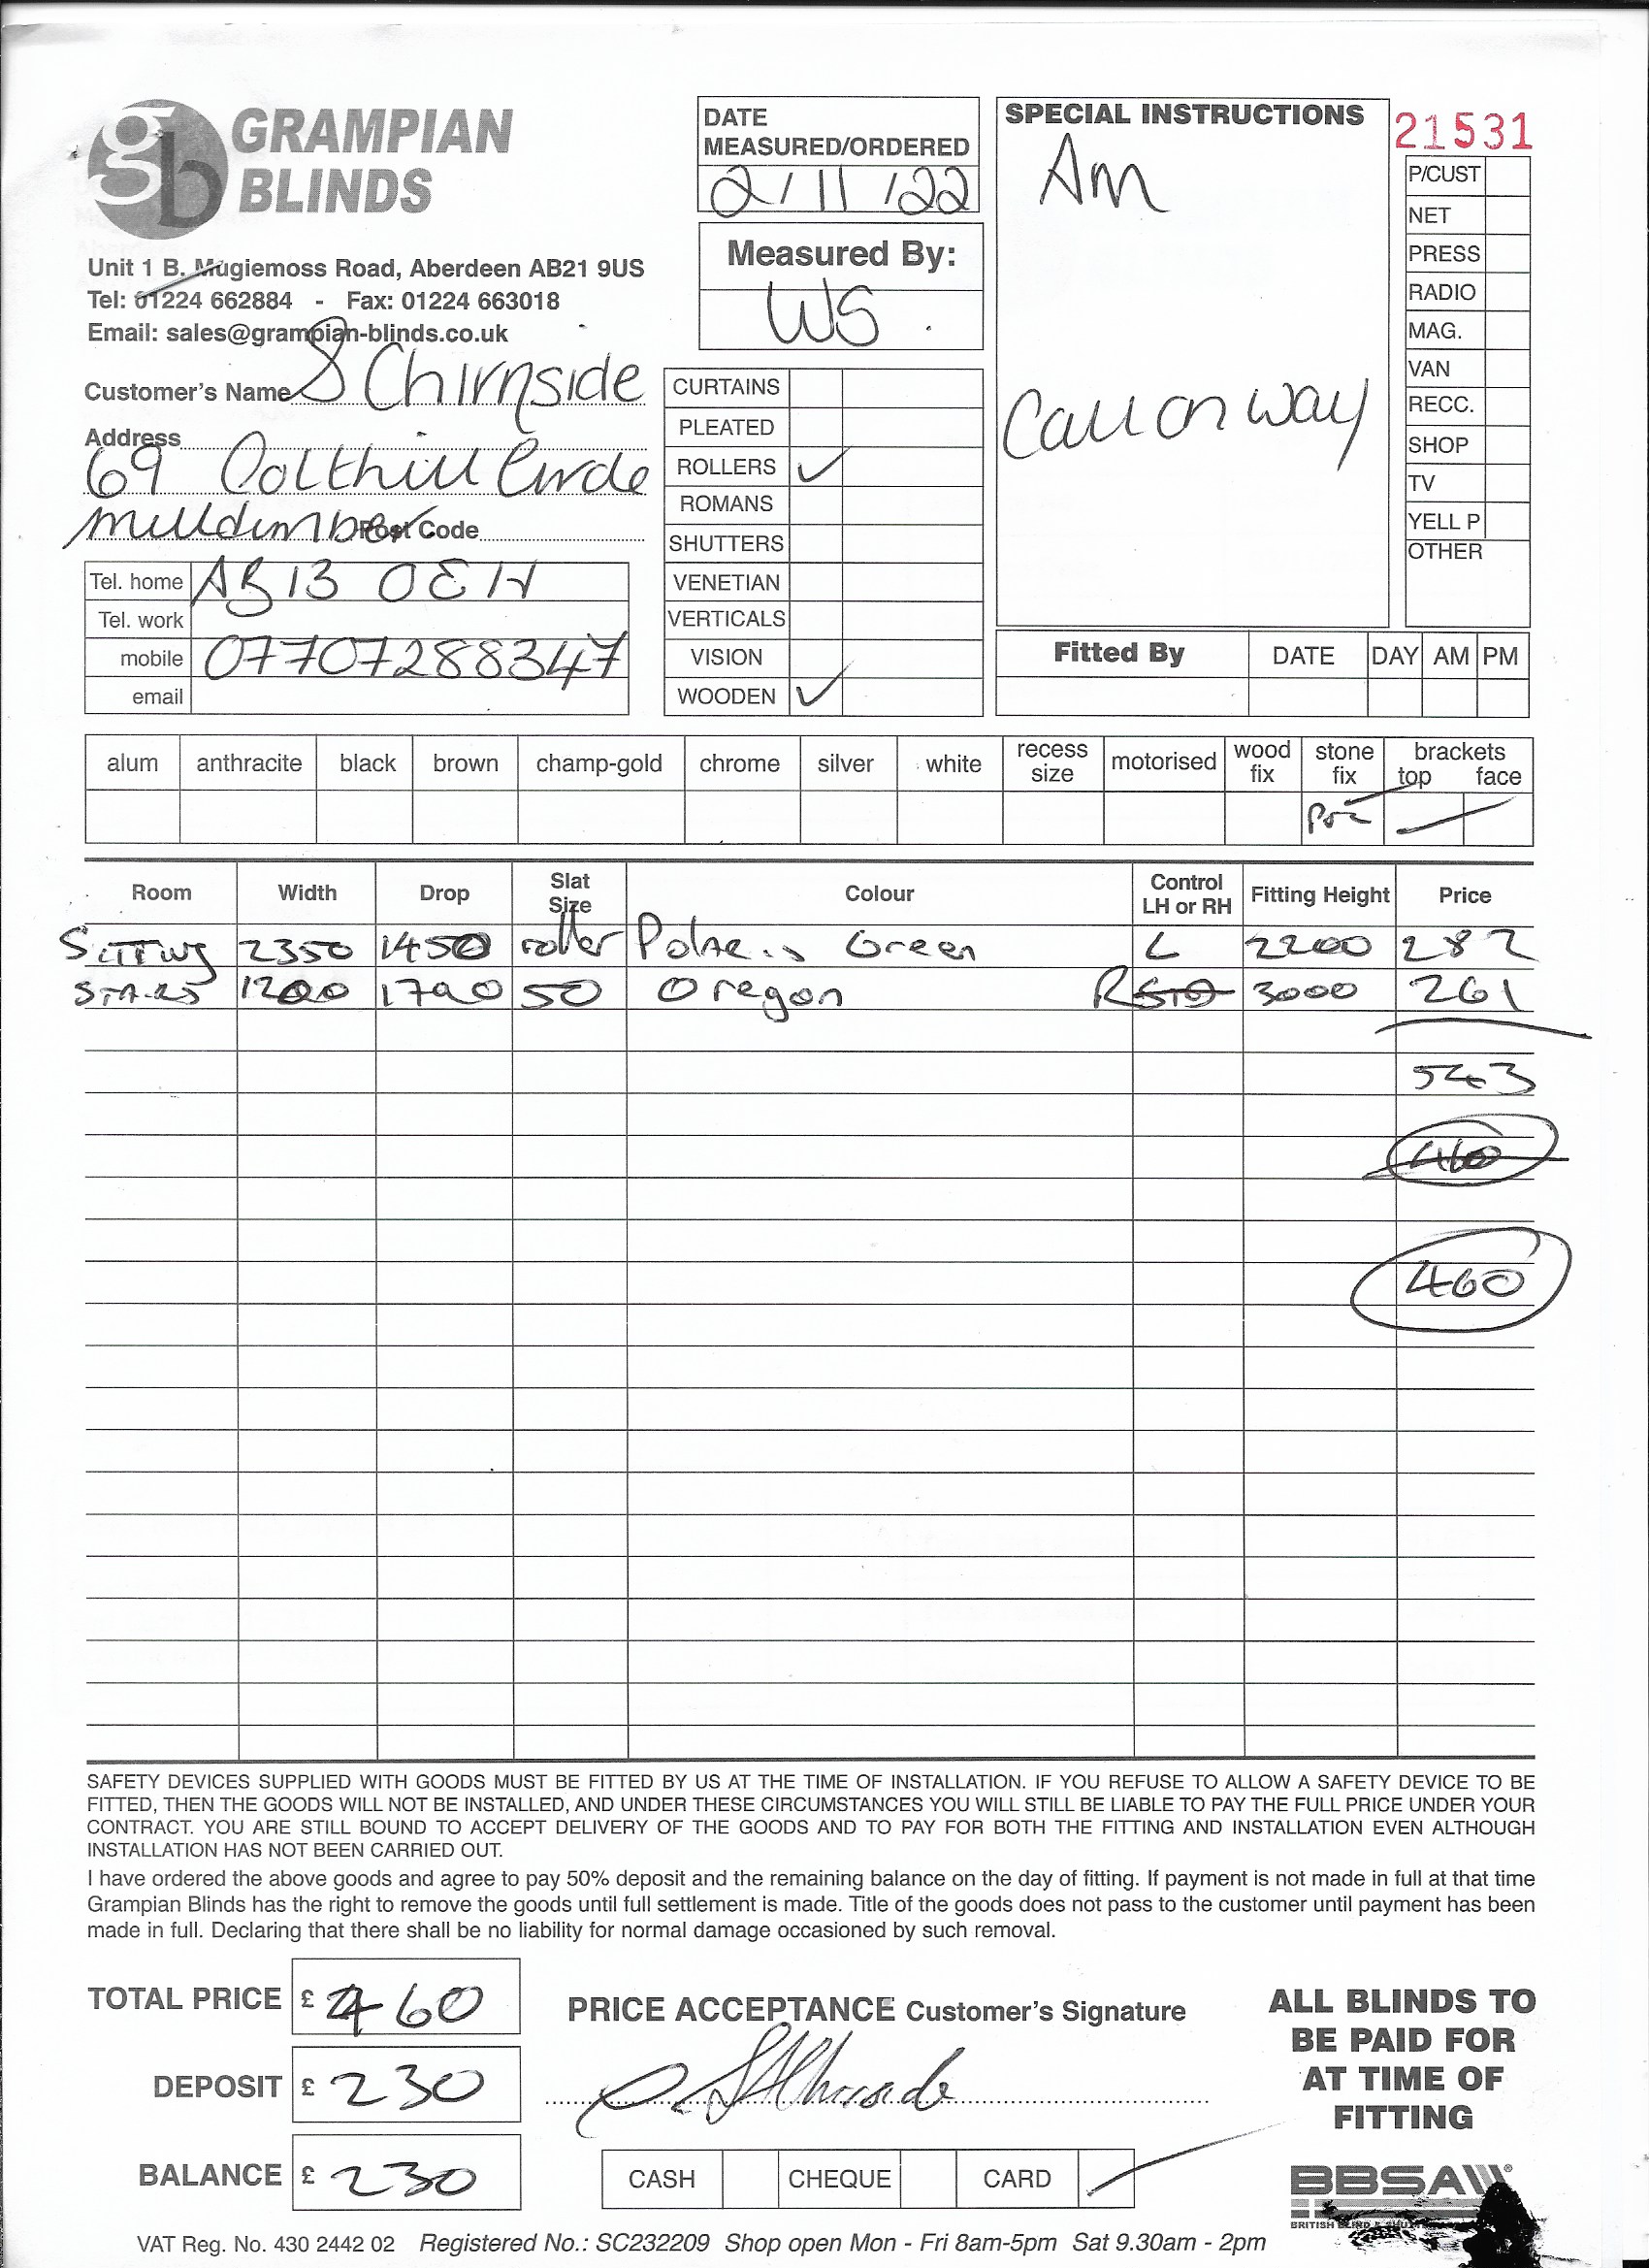 GRAMPIAN
BLINDS
Unit 1 B, Mugiemoss Road, Aberdeen AB21 9US
Tel: 01224 662884 - Fax: 01224 663018
Email: sales@grampian-blinds.co.uk
DATE
MEASURED/ORDERED
2/11/22
Measured By:
WS
SPECIAL INSTRUCTIONS
Am
Call on way
21531
P/CUST
NET
PRESS
RADIO
MAG.
VAN
RECC.
SHOP
TV
YELL P
OTHER
Customer's Name S Chirnside
Address
69 Colthill Circle
Milltimber Post Code
Tel. home AB13 0EH
Tel. work
mobile 07707288347
email
CURTAINS
PLEATED
ROLLERS ✓
ROMANS
SHUTTERS
VENETIAN
VERTICALS
VISION
WOODEN ✓
Fitted By DATE DAY AM PM
alum anthracite black brown champ-gold chrome silver white recess size motorised wood fix stone fix brackets top face
Room Width Drop Slat Size Colour Control LH or RH Fitting Height Price
Sitting 2350 1450 roller Green L 2200 282
STAIRS 1200 1790 50 Oregon R 3000 261
543
460
460
SAFETY DEVICES SUPPLIED WITH GOODS MUST BE FITTED BY US AT THE TIME OF INSTALLATION. IF YOU REFUSE TO ALLOW A SAFETY DEVICE TO BE
FITTED, THEN THE GOODS WILL NOT BE INSTALLED, AND UNDER THESE CIRCUMSTANCES YOU WILL STILL BE LIABLE TO PAY THE FULL PRICE UNDER YOUR
CONTRACT. YOU ARE STILL BOUND TO ACCEPT DELIVERY OF THE GOODS AND TO PAY FOR BOTH THE FITTING AND INSTALLATION EVEN ALTHOUGH
INSTALLATION HAS NOT BEEN CARRIED OUT.
I have ordered the above goods and agree to pay 50% deposit and the remaining balance on the day of fitting. If payment is not made in full at that time
Grampian Blinds has the right to remove the goods until full settlement is made. Title of the goods does not pass to the customer until payment has been
made in full. Declaring that there shall be no liability for normal damage occasioned by such removal.
TOTAL PRICE £ 460
DEPOSIT £ 230
BALANCE £ 230
PRICE ACCEPTANCE Customer's Signature
CASH CHEQUE CARD
ALL BLINDS TO
BE PAID FOR
AT TIME OF
FITTING
BBSA
VAT Reg. No. 430 2442 02 Registered No.: SC232209 Shop open Mon - Fri 8am-5pm Sat 9.30am - 2pm